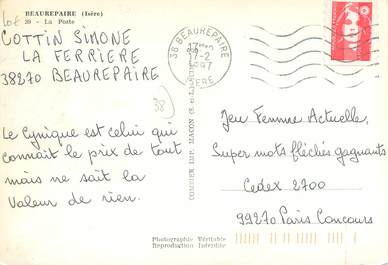 BEAUREPAIRE (Isère)
20 - La Poste
10€
COTTIN SIMONE
LA FERRIERE
38270 BEAUREPAIRE
38
Le Cynique est celui qui
connait le prix de tout
mais ne sait la
Valeur de rien.
38 BEAUREPAIRE
17-2
1997
ISERE
COMBIER IMP. MACON (S.-et-L.)
Jeu Femme Actuelle,
Super mots fléchés gagnants
Cedex 2700
99270 Paris Concours
Photographie Véritable
Reproduction Interdite